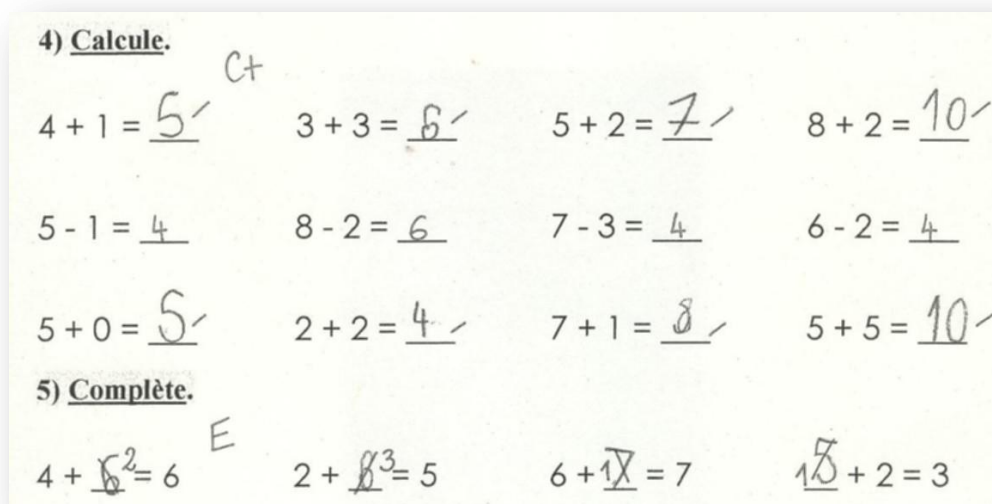 4) Calcule.
C+
4 + 1 = 5 3 + 3 = 6 5 + 2 = 7 8 + 2 = 10
5 - 1 = 4 8 - 2 = 6 7 - 3 = 4 6 - 2 = 4
5 + 0 = 5 2 + 2 = 4 7 + 1 = 8 5 + 5 = 10
5) Complète.
E
4 + 2 = 6 2 + 3 = 5 6 + 1 = 7 1 + 2 = 3